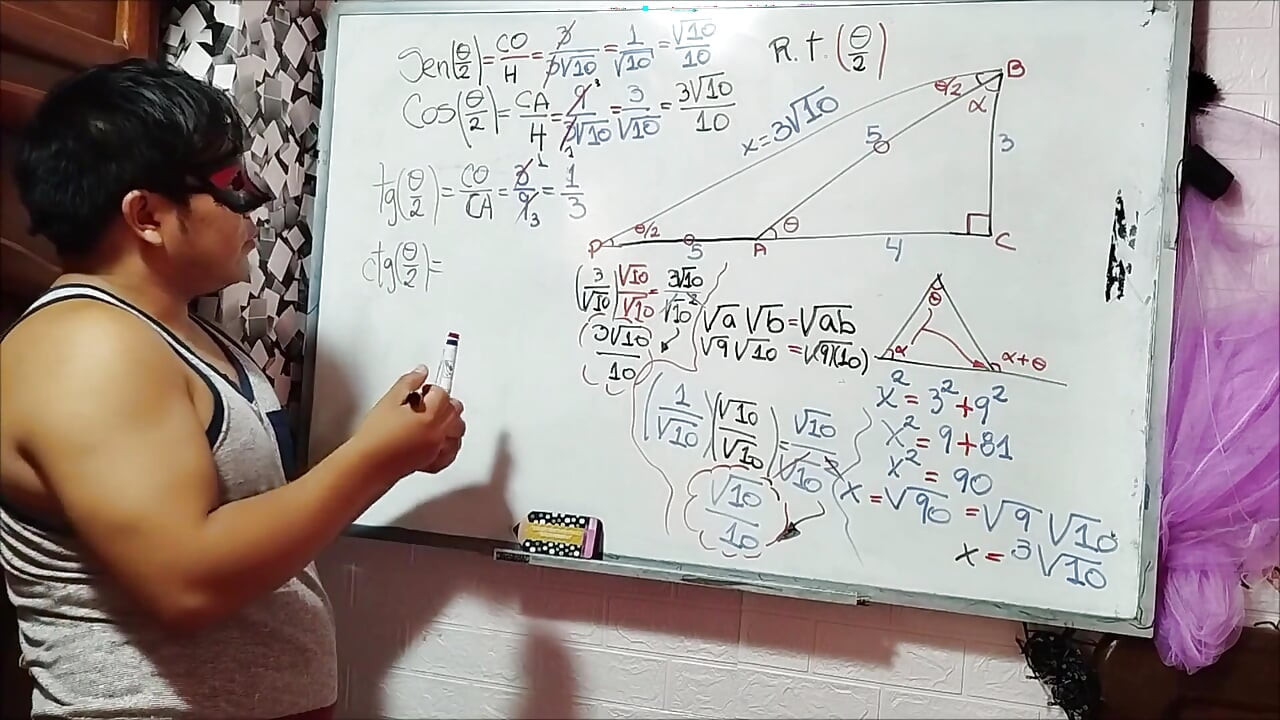 Sen(θ/2) = CO/H = 3/3√10 = 1/√10 = √10/10
R.t.(θ/2)
Cos(θ/2) = CA/H = 9³/3√10 = 3/√10 = 3√10/10
tg(θ/2) = CO/CA = 3¹/9₃ = 1/3
ctg(θ/2) =
B
θ/2
α
x = 3√10
5
3
P
θ/2
5
A
θ
4
C
(3/√10)(√10/√10) = 3√10/√10²
(3√10/10)
√a √b = √ab
√9 √10 = √(9)(10)
θ
α
α+θ
(1/√10)(√10/√10) = √10/√10²
√10/10
x² = 3² + 9²
x² = 9 + 81
x² = 90
x = √90 = √9 √10
x = 3√10